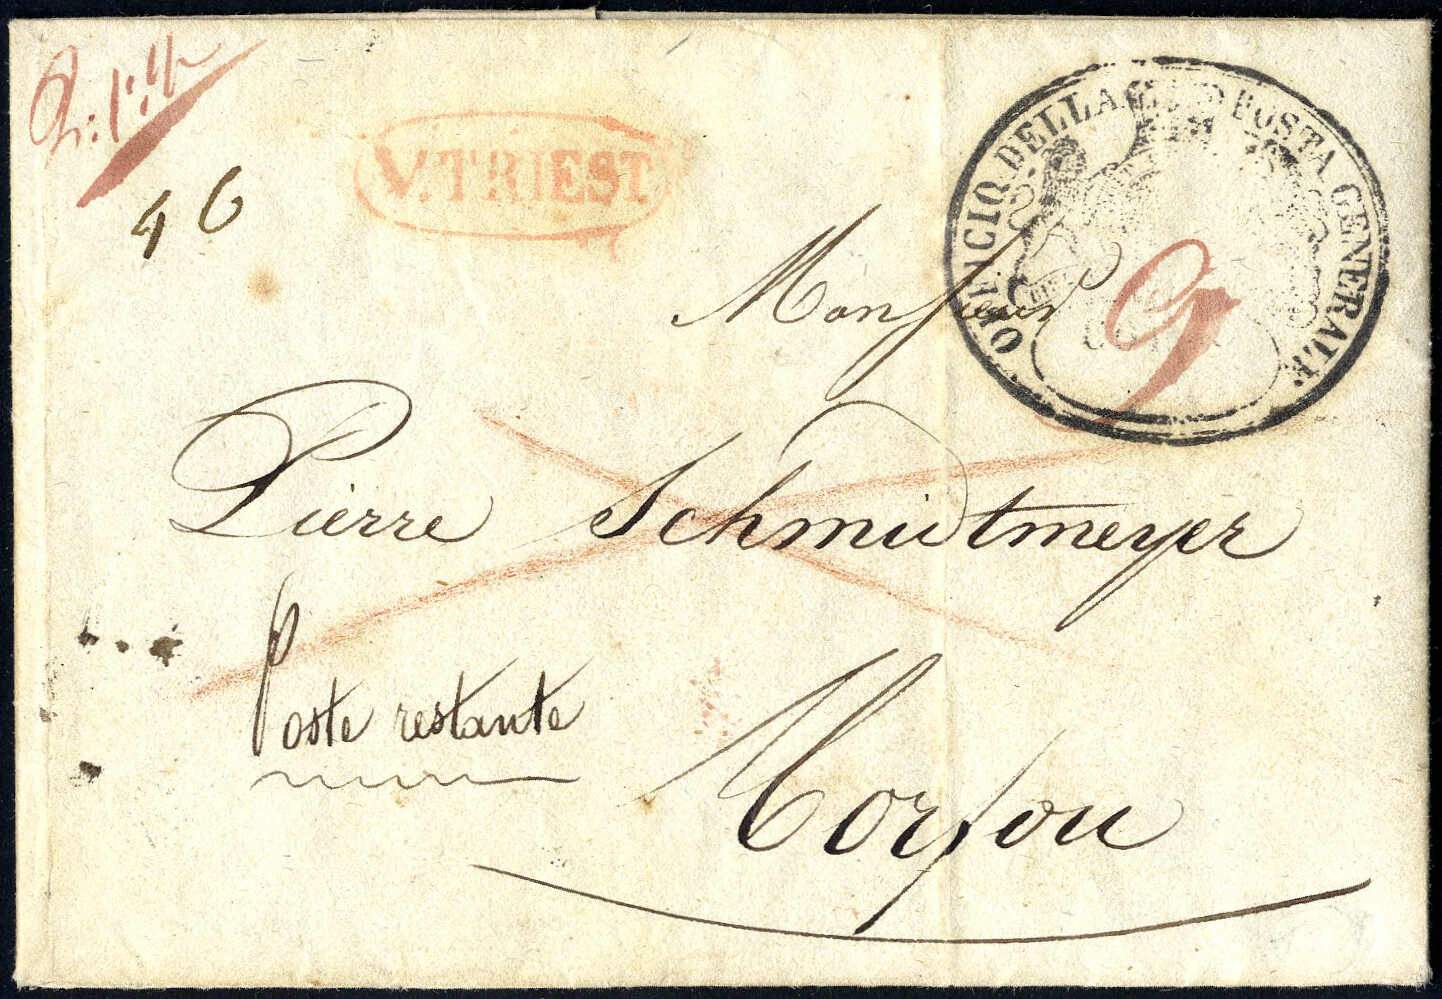 46
V. TRIEST
OFFICIO DELLA POSTA GENERALE
9
Monsieur
Pierre Schmidtmeyer
Poste restante
Corfou